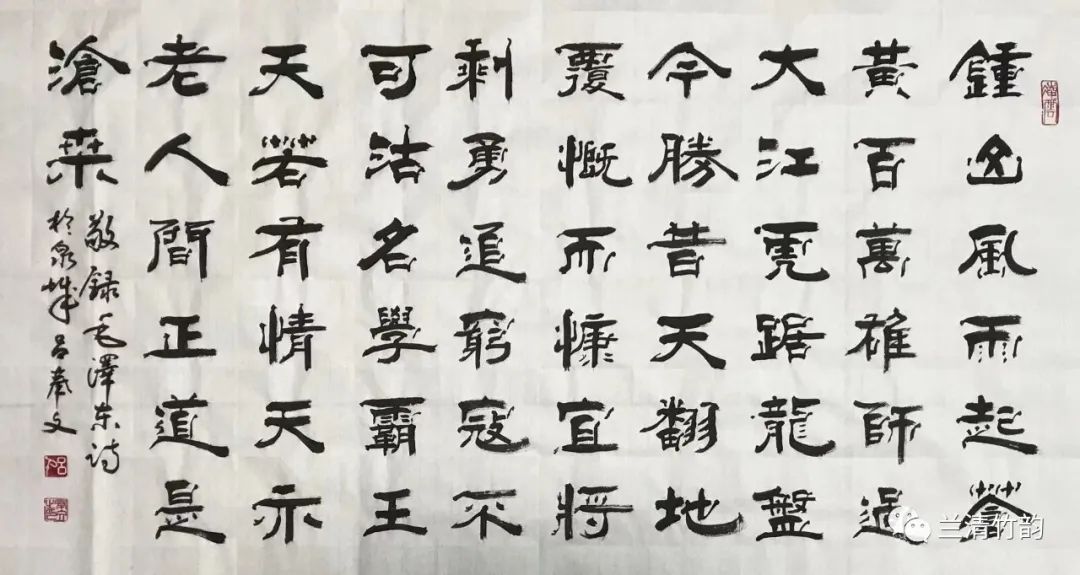 鍾山風雨起蒼
黃百萬雄師過
大江虎踞龍盤
今勝昔天翻地
覆慨而慷宜將
剩勇追窮寇不
可沽名學霸王
天若有情天亦
老人間正道是
滄桒
敬録毛澤东詩
於泉城吕奉文
兰清竹韵